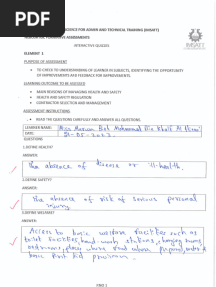 PDF
FOR SCIENCE AND TECHNICAL TRAINING (IMSATT)
IMSATT
INTERACTIVE QUIZZES
ELEMENT 1
PURPOSE OF ASSESSMENT
TO CHECK THE UNDERSTANDING OF LEARNER IN SUBJECTS, IDENTIFYING THE OPPORTUNITY
OF IMPROVEMENTS AND FEEDBACK FOR IMPROVEMENTS.
LEARNING OUTCOME TO BE ASSESSED
MAIN REASONS OF MANAGING HEALTH AND SAFETY
HEALTH AND SAFETY REGULATION
CONTRACTOR SELECTION AND MANAGEMENT
ASSESSMENT INSTRUCTIONS
READ THE QUESTIONS CAREFULLY AND ANSWER ALL QUESTIONS.
LEARNER NAME: Miss Mohammed Al
DATE: 2023
QUESTIONS
1.DEFINE HEALTH?
ANSWER:
The absence of disease or ill-health.
1.DEFINE SAFETY?
ANSWER:
The absence of risk of serious personal
injury
1.DEFINE WELFARE?
ANSWER:
Access to basic welfare facilities such as
toilet facilities, hand-wash stations, changing rooms
and
basic first aid provision.
PAGE 1